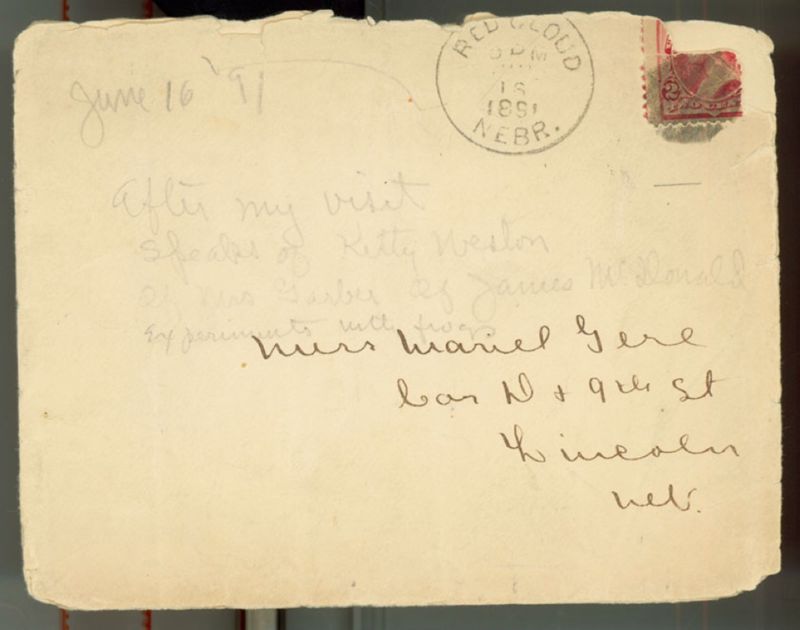 RED CLOUD
6 PM
16
1891
NEBR.
June 16 '91
After my visit
Speaks of Kitty Weston
of Mrs Garber of James McDonald
Experiments with frogs
Miss Mariel Gere
Cor D & 9th St
Lincoln
Neb.
2